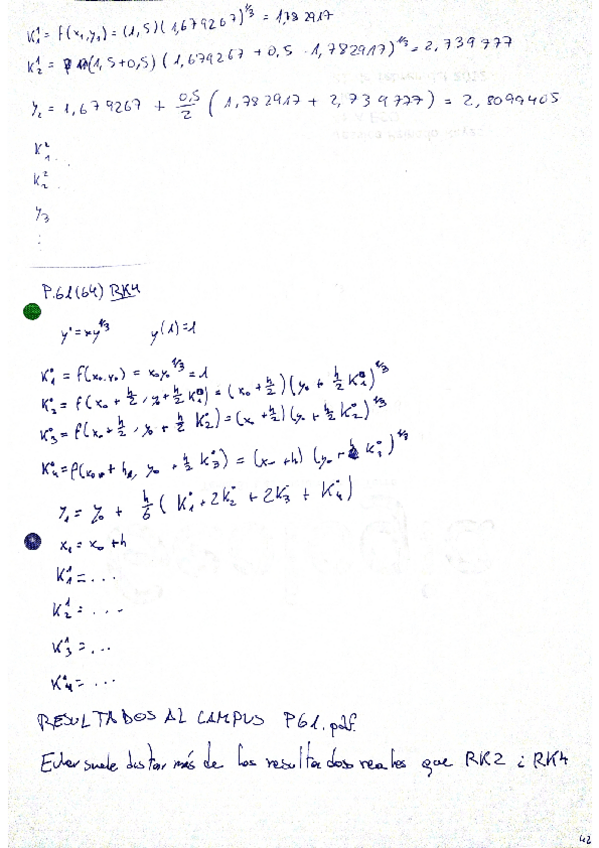 K₁¹ = f(x₁,y₁) = (1,5)(1,679267)^1/3 = 1,782917
K₂¹ = (1,5+0,5)(1,679267 + 0,5 · 1,782917)^1/3 = 2,739777
y₂ = 1,679267 + 0,5/2 (1,782917 + 2,739777) = 2,8099405
K₁² ...
K₂² ...
y₃
⋮
P.61(64) RK4
y' = xy^1/3 y(1)=1
K₁⁰ = f(x₀,y₀) = x₀y₀^1/3 = 1
K₂⁰ = f(x₀ + h/2, y₀ + h/2 K₁⁰) = (x₀ + h/2)(y₀ + h/2 K₁⁰)^1/3
K₃⁰ = f(x₀ + h/2, y₀ + h/2 K₂⁰) = (x₀ + h/2)(y₀ + h/2 K₂⁰)^1/3
K₄⁰ = f(x₀ + h, y₀ + h/2 K₃⁰) = (x₀ + h)(y₀ + K₃⁰)^1/3
y₁ = y₀ + h/6 (K₁⁰ + 2K₂⁰ + 2K₃⁰ + K₄⁰)
x₁ = x₀ + h
K₁¹ = ...
K₂¹ = ...
K₃¹ = ...
K₄¹ = ...
RESULTADOS AL CAMPUS P61.pdf
Euler suele distar más de los resultados reales que RK2 i RK4
42